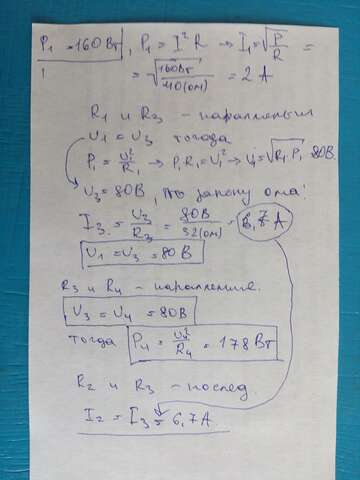 P₁ = 160 Вт, P₁ = I² R → I₁ = √P/R =
= √160Вт/40(ом) = 2 А
R₁ и R₃ – параллельны
U₁ = U₃ тогда
P₁ = U₁²/R₁ → P₁R₁ = U₁² → U₁ = √R₁ P₁ 80В.
U₃ = 80В, по закону ома:
I₃ = U₃/R₃ = 80В/32(ом) = А
U₁ = U₃ = 80В
R₃ и R₄ – параллельные.
U₃ = U₄ = 80В
тогда P₄ = U₄²/R₄ = 178 Вт
R₂ и R₃ – послед.
I₂ = I₃ = 6,7 А.